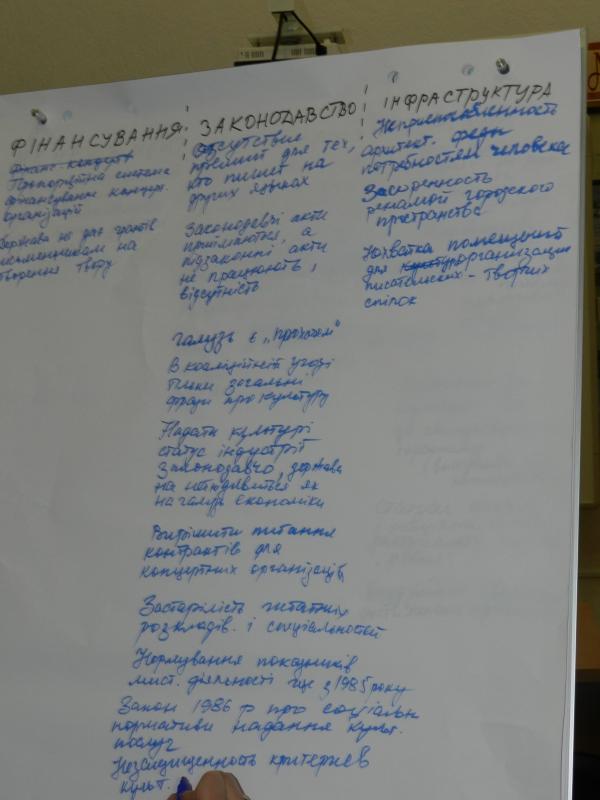 ФІНАНСУВАННЯ
Пропорційна система
фінансування концерт.
організацій
Держава не дає грантів
письменникам на
творення твору
ЗАКОНОДАВСТВО
Отсутствие
премий для тех,
кто пишет на
других языках
Законодавчі акти
приймаються, а
підзаконні акти
не працюють,
відсутність
галузь є „прохачем"
В коаліційній угоді
тільки загальні
фрази про культуру
Надати культурі
статус індустрії
Законодавчо, держава
на не дивиться як
на галузь економіки
Вирішити питання
контрактів для
концертних організацій
Застарілість штатних
розкладів. і спеціальностей
Нормування показників
мист. діяльності ще з 1985 року
Закон 1986 р про соціальн
нормативи надання культ.
послуг
Незащищенность критериев
культ.
ІНФРАСТРУКТУРА
Неприспособленность
архитект. среды
потребностям человека
Засоренность
рекламой городского
пространства
Нехватка помещений
для организации
писательских - творчих
спілок